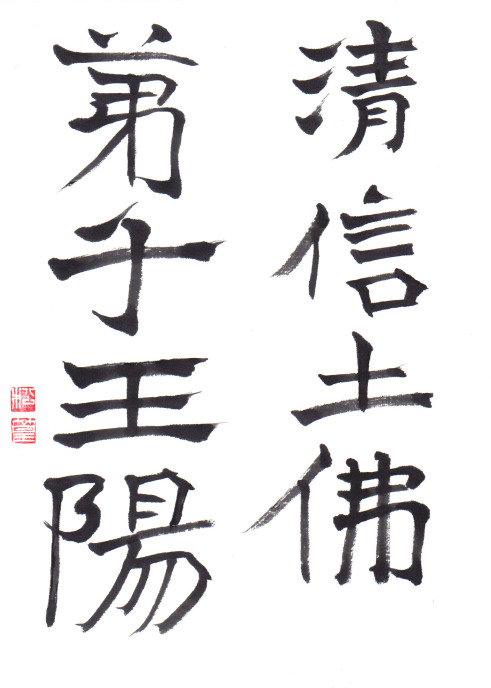 清信土佛
弟子王陽